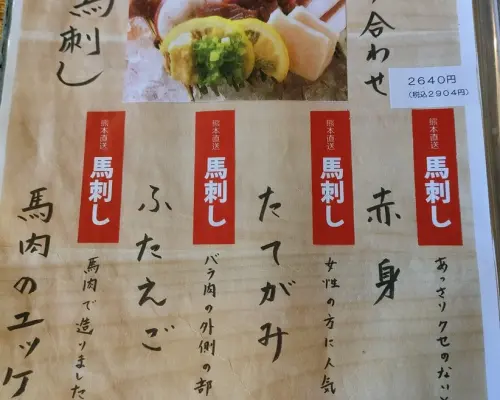 合わせ
2640円
(税込2904円)
馬刺し
熊本直送
馬刺し
赤身
あっさりクセのない
熊本直送
馬刺し
たてがみ
女性の方に人気
熊本直送
馬刺し
ふたえご
バラ肉の外側の部
熊本直送
馬刺し
馬肉のユッケ
馬肉で造りました